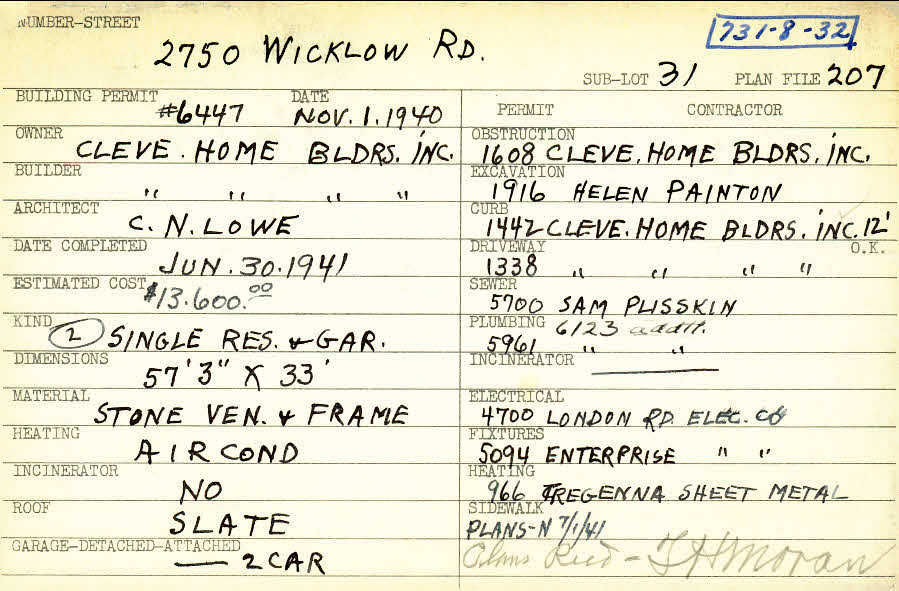 NUMBER-STREET
2750 WICKLOW RD.
731-8-32
SUB-LOT 31 PLAN FILE 207
BUILDING PERMIT #6447 DATE NOV. 1. 1940
OWNER CLEVE. HOME BLDRS. INC.
BUILDER " " " "
ARCHITECT C. N. LOWE
DATE COMPLETED JUN. 30. 1941
ESTIMATED COST $13.600.00
KIND 2 SINGLE RES. & GAR.
DIMENSIONS 57' 3" X 33'
MATERIAL STONE VEN. & FRAME
HEATING AIR COND
INCINERATOR NO
ROOF SLATE
GARAGE-DETACHED-ATTACHED — 2 CAR
PERMIT CONTRACTOR
OBSTRUCTION 1608 CLEVE. HOME BLDRS. INC.
EXCAVATION 1916 HELEN PAINTON
CURB 1442 CLEVE. HOME BLDRS. INC. 12' O.K.
DRIVEWAY 1338 " " " "
SEWER 5700 SAM PLISSKIN
PLUMBING 6123 addit.
5961 " "
INCINERATOR —
ELECTRICAL 4700 LONDON RD. ELEC. CO
FIXTURES 5094 ENTERPRISE " "
HEATING 966 TREGENNA SHEET METAL
SIDEWALK
PLANS-N 7/1/41
Plans Recd - T H Moran